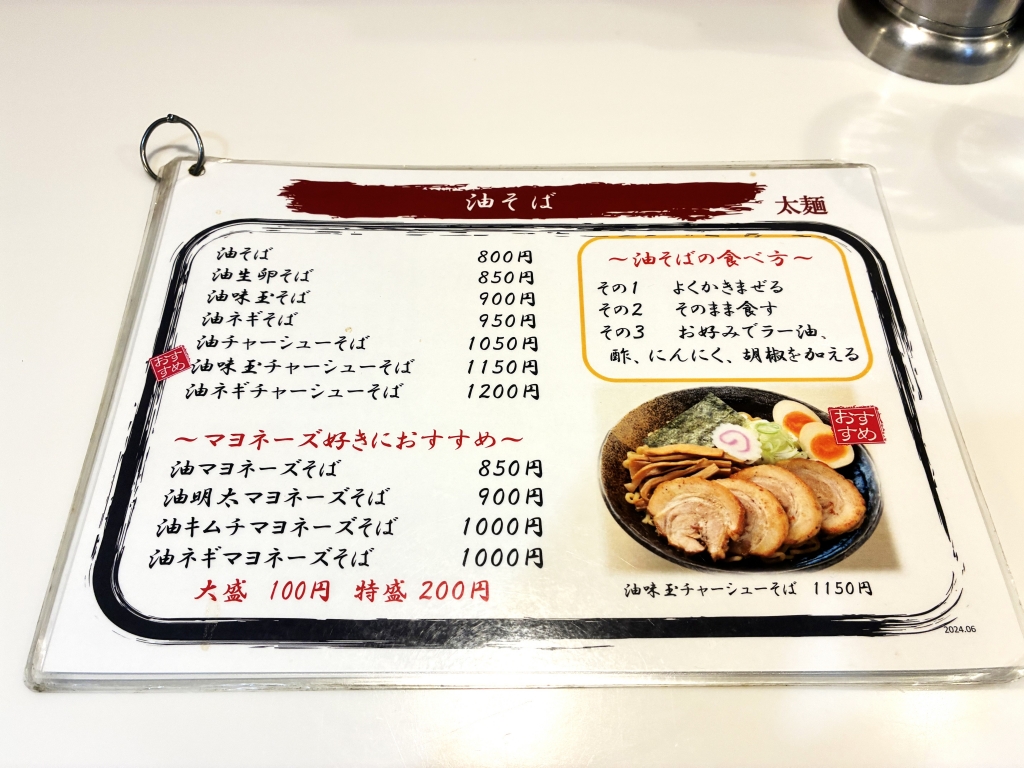 油そば
太麺
油そば 800円
油生卵そば 850円
油味玉そば 900円
油ネギそば 950円
油チャーシューそば 1050円
おすすめ
油味玉チャーシューそば 1150円
油ネギチャーシューそば 1200円
～マヨネーズ好きにおすすめ～
油マヨネーズそば 850円
油明太マヨネーズそば 900円
油キムチマヨネーズそば 1000円
油ネギマヨネーズそば 1000円
大盛 100円 特盛 200円
～油そばの食べ方～
その1 よくかきまぜる
その2 そのまま食す
その3 お好みでラー油、
酢、にんにく、胡椒を加える
おすすめ
油味玉チャーシューそば 1150円
2024.06